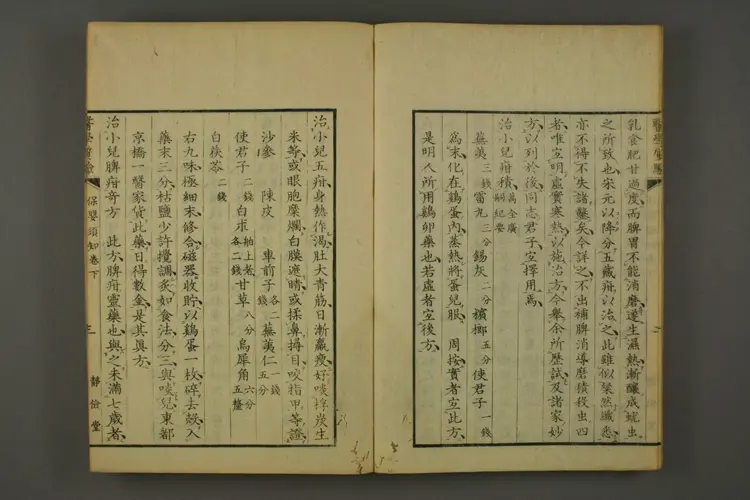 乳食肥甘過度而脾胃不能消磨遂生濕熱漸釀成蚘虫
之所致也宋元以降分五藏疳以治之此雖似粲然纖悉
亦不得不失諸鑿矣今詳之不出補脾消導磨積殺虫四
者唯宜明虛實寒熱以施治方今舉余所歷試及諸家妙
方以列於後同志君子宜擇用焉
治小兒疳積 萬全廣嗣紀要
蕪荑 三錢 雷丸 三分 錫灰 二分 檳榔 五分 使君子 一錢
為末化在鷄蛋內蒸熱將蛋兒服 周按實者宜此方
是明人所用鷄卵藥也若虛者宜後方
治小兒五疳身熱作渴肚大青筋日漸羸瘦好啖炭生
米等或眼胞糜爛白膜遮睛或揉鼻撏目咬指甲等證
沙參 陳皮 車前子 各二錢 蕪荑仁 一錢五分
使君子 二錢 白朮 各二錢 甘草 八分 烏犀角 六分五釐
白茯苓 二錢
右九味極細末修合磁器收貯以鷄蛋一枚碎去殼入
藥末三分枯鹽少許攪調炙如食法分三與啖兒東都
京橋一醫家貨此藥日得數金是其真方
治小兒脾疳奇方 此方脾疳靈藥也與之未滿七歲者
保嬰須知卷下
三
靜儉堂